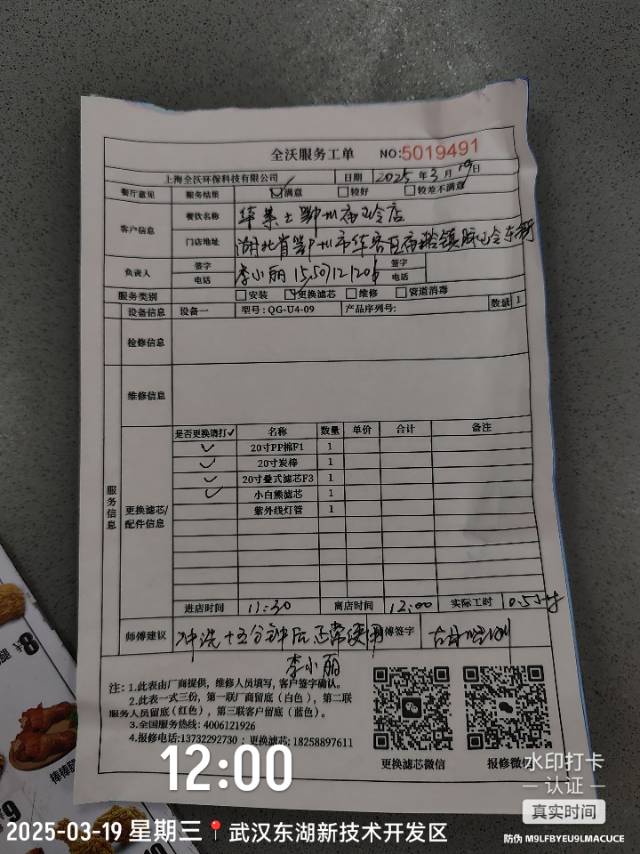 全沃服务工单 NO:5019491
上海全沃环保科技有限公司 日期 2025年3月19日
餐厅意见 服务结果 ☑满意 □较好 □较差不满意
客户信息 餐饮名称 华莱士鄂州庙岭店
门店地址 湖北省鄂州市华容区庙岭镇
负责人 签字 李小丽 签字
电话 电话
服务类别 □安装 ☑更换滤芯 □维修 □管道消毒
设备信息 设备一 型号:QG-U4-09 产品序列号: 数量 1
检修信息
维修信息
服务信息
更换滤芯/配件信息
是否更换请打✓ 名称 数量 单价 合计 备注
✓ 20寸PP棉F1 1
✓ 20寸炭棒 1
✓ 20寸叠式滤芯F3 1
✓ 小白熊滤芯 1
紫外线灯管 1
进店时间 11:30 离店时间 12:00 实际工时 0.5小时
师傅建议 冲洗十五分钟后正常使用 师傅签字
李小丽
注：1.此表由厂商提供，维修人员填写，客户签字确认。
2.此表一式三份，第一联厂商留底（白色），第二联
服务人员留底（红色），第三联客户留底（蓝色）。
3.全国服务热线：4006121926
4.报修电话:13732292730；更换滤芯：18258897611
更换滤芯微信 报修微信
水印打卡
认证
真实时间
12:00
2025-03-19 星期三 武汉东湖新技术开发区
防伪 M9LFBYEU9LMACUCE
棒棒